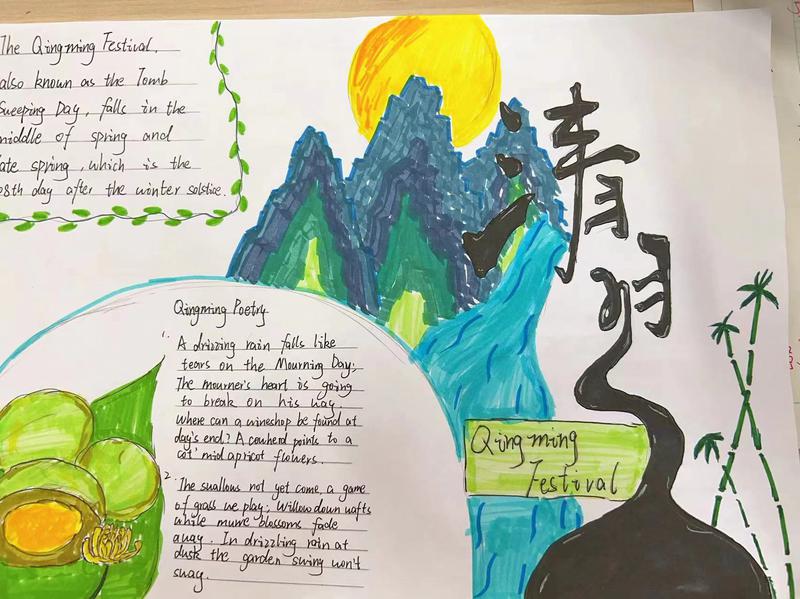 The Qingming Festival,
also known as the Tomb
Sweeping Day, falls in the
middle of spring and
late spring, which is the
08th day after the winter solstice.
清明
Qingming Poetry
1.
A drizzing rain falls like
tears on the Mourning Day;
The mourner's heart is going
to break on his way.
Where can a wineshop be found at
day's end? A cowherd points to a
cot' mid apricot flowers.
2.
The swallows not yet come, a game
of grass we play; Willow down wafts
while mume blossoms fade
away. In drizzling rain at
dusk the garden swing won't
sway.
Qingming
Festival